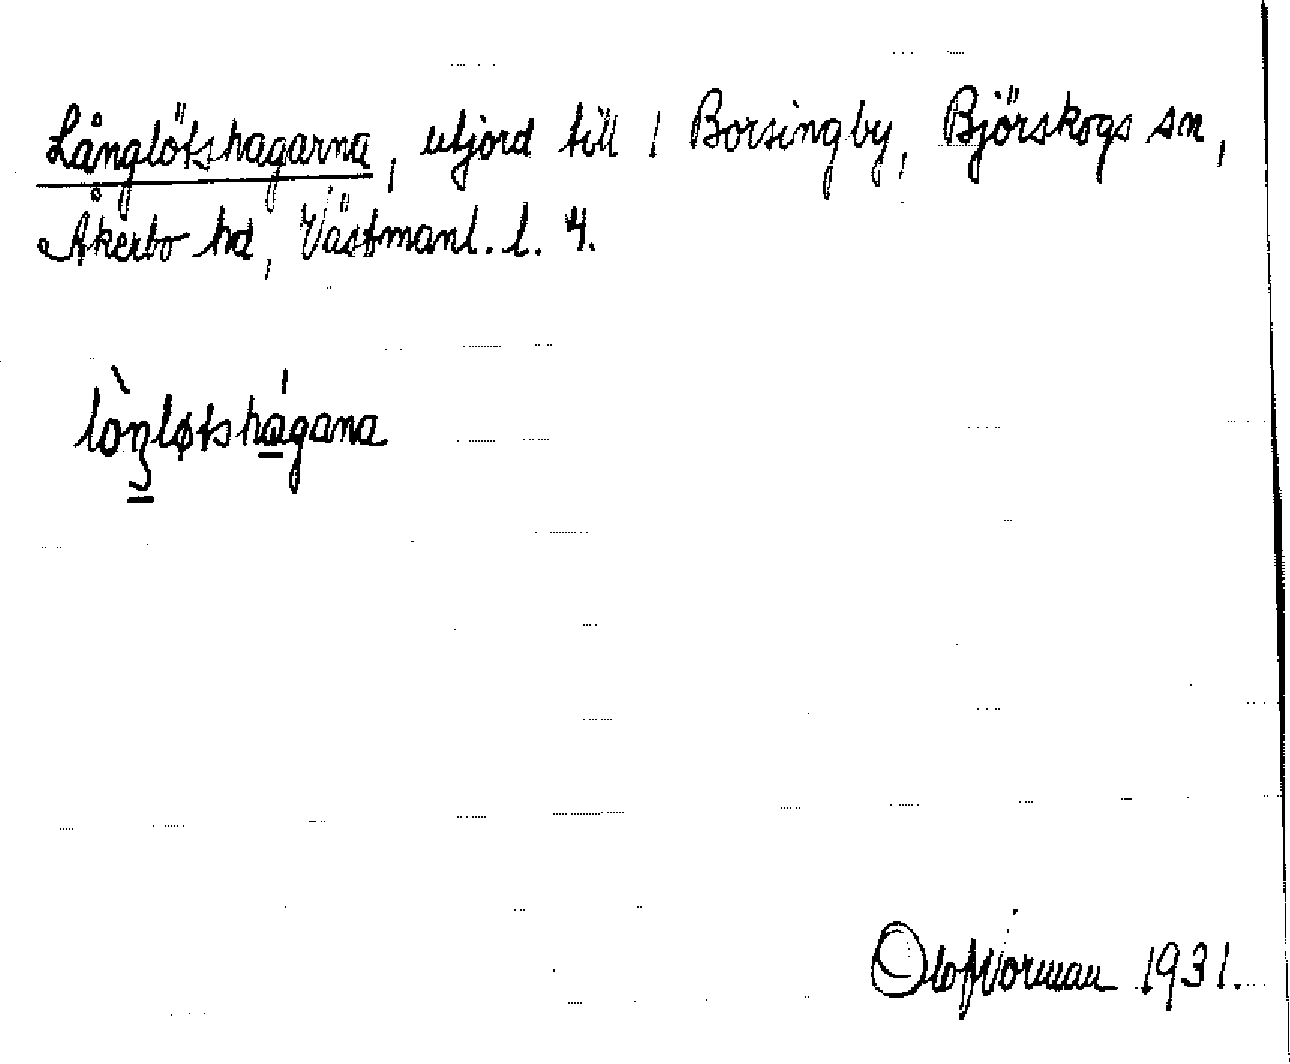 Långlötshagarna, utjord till 1 Borsingby, Björskogs sn,
Åkerbo hd, Västmanl. l. 4.
lòŋløtshágana
Olof Norman 1931.